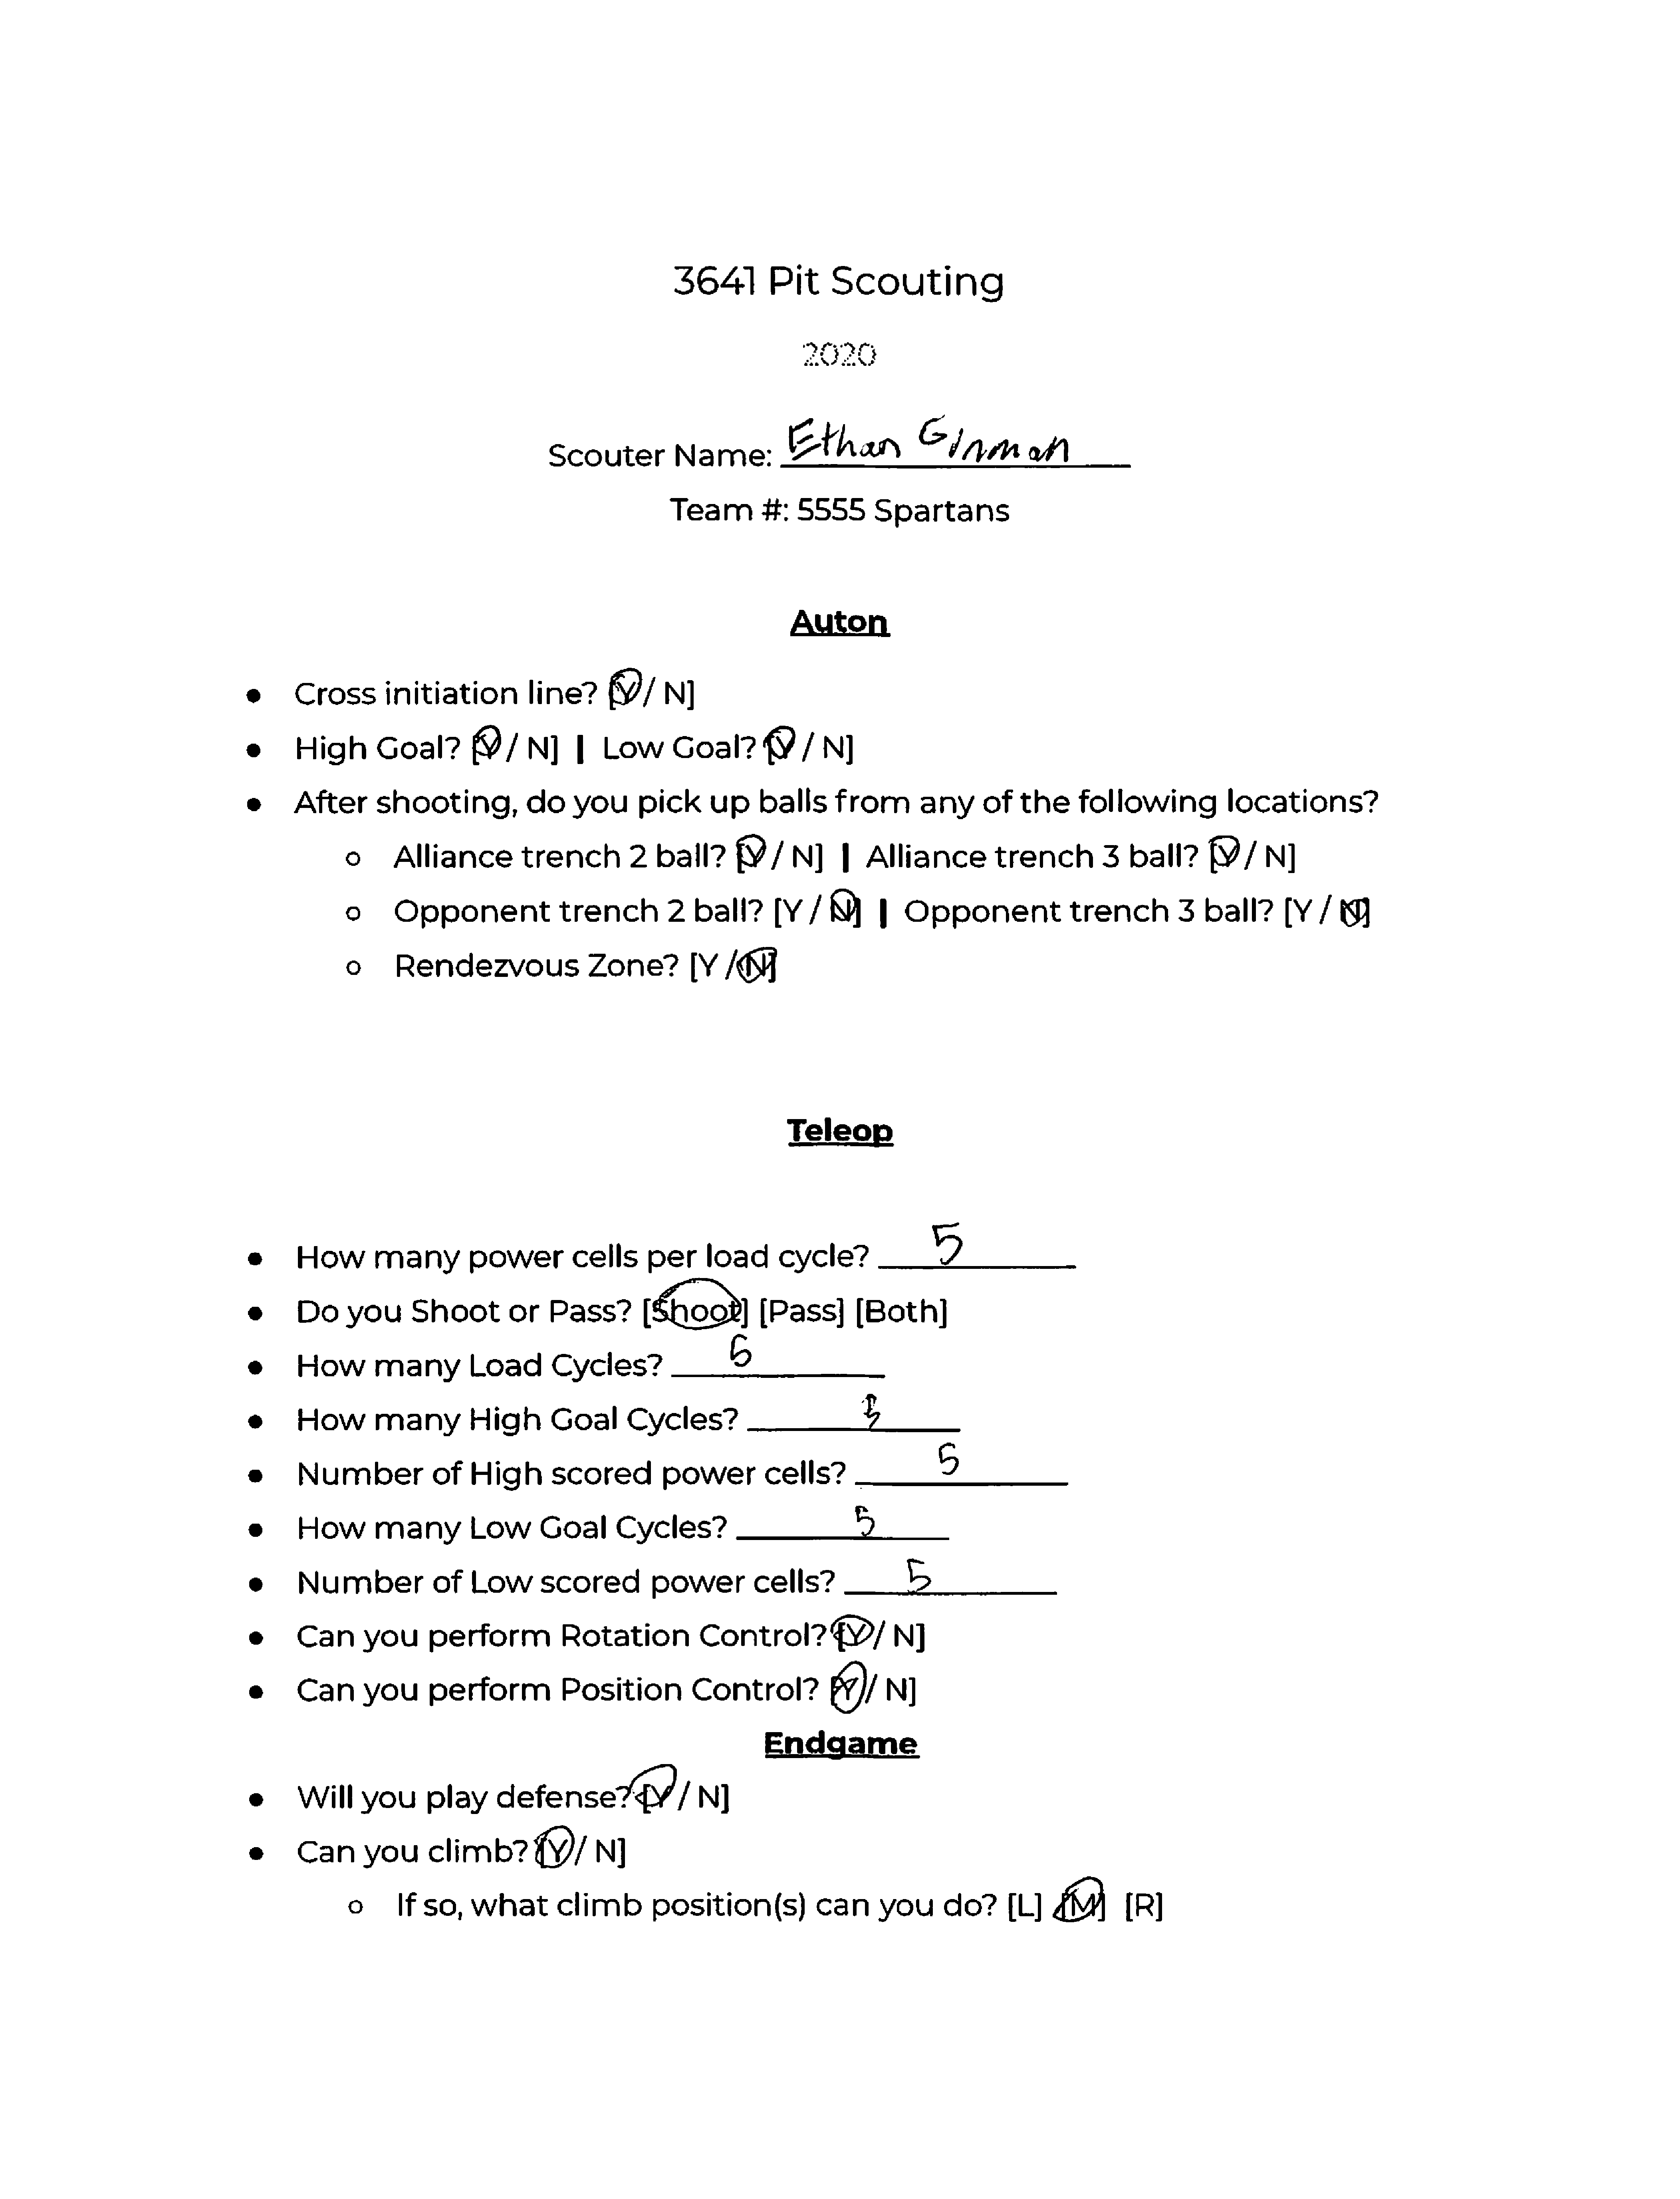 3641 Pit Scouting
2020
Scouter Name: Ethan Ginman
Team #: 5555 Spartans
Auton
● Cross initiation line? [Y / N]
● High Goal? [Y / N] | Low Goal? [Y / N]
● After shooting, do you pick up balls from any of the following locations?
○ Alliance trench 2 ball? [Y / N] | Alliance trench 3 ball? [Y / N]
○ Opponent trench 2 ball? [Y / N] | Opponent trench 3 ball? [Y / N]
○ Rendezvous Zone? [Y / N]
Teleop
● How many power cells per load cycle? 5
● Do you Shoot or Pass? [Shoot] [Pass] [Both]
● How many Load Cycles?
● How many High Goal Cycles?
● Number of High scored power cells? 5
● How many Low Goal Cycles? 5
● Number of Low scored power cells? 5
● Can you perform Rotation Control? [Y / N]
● Can you perform Position Control? [Y / N]
Endgame
● Will you play defense? [Y / N]
● Can you climb? [Y / N]
○ If so, what climb position(s) can you do? [L] [M] [R]